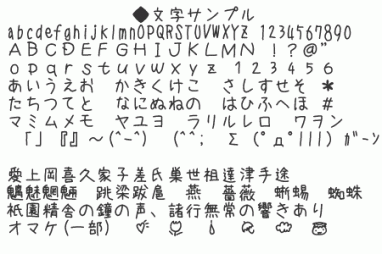 ◆文字サンプル
abcdefghijklmnOPQRSTUVWXYZ 1234567890
ABCDEFGHIJKLMN !?@"
opqrstuvwxyz 123456
あいうえお かきくけこ さしすせそ *
たちつてと なにぬねの はひふへほ #
マミムメモ ヤユヨ ラリルレロ ワヲン
「」『』～(^-^) (^^; Σ(ﾟдﾟ|||) ｶﾞｰﾝ
愛上岡喜久家子差氏巣世祖達津手途
魑魅魍魎 跳梁跋扈 燕 薔薇 蜥蜴 蜘蛛
祇園精舎の鐘の声、諸行無常の響きあり
オマケ(一部)